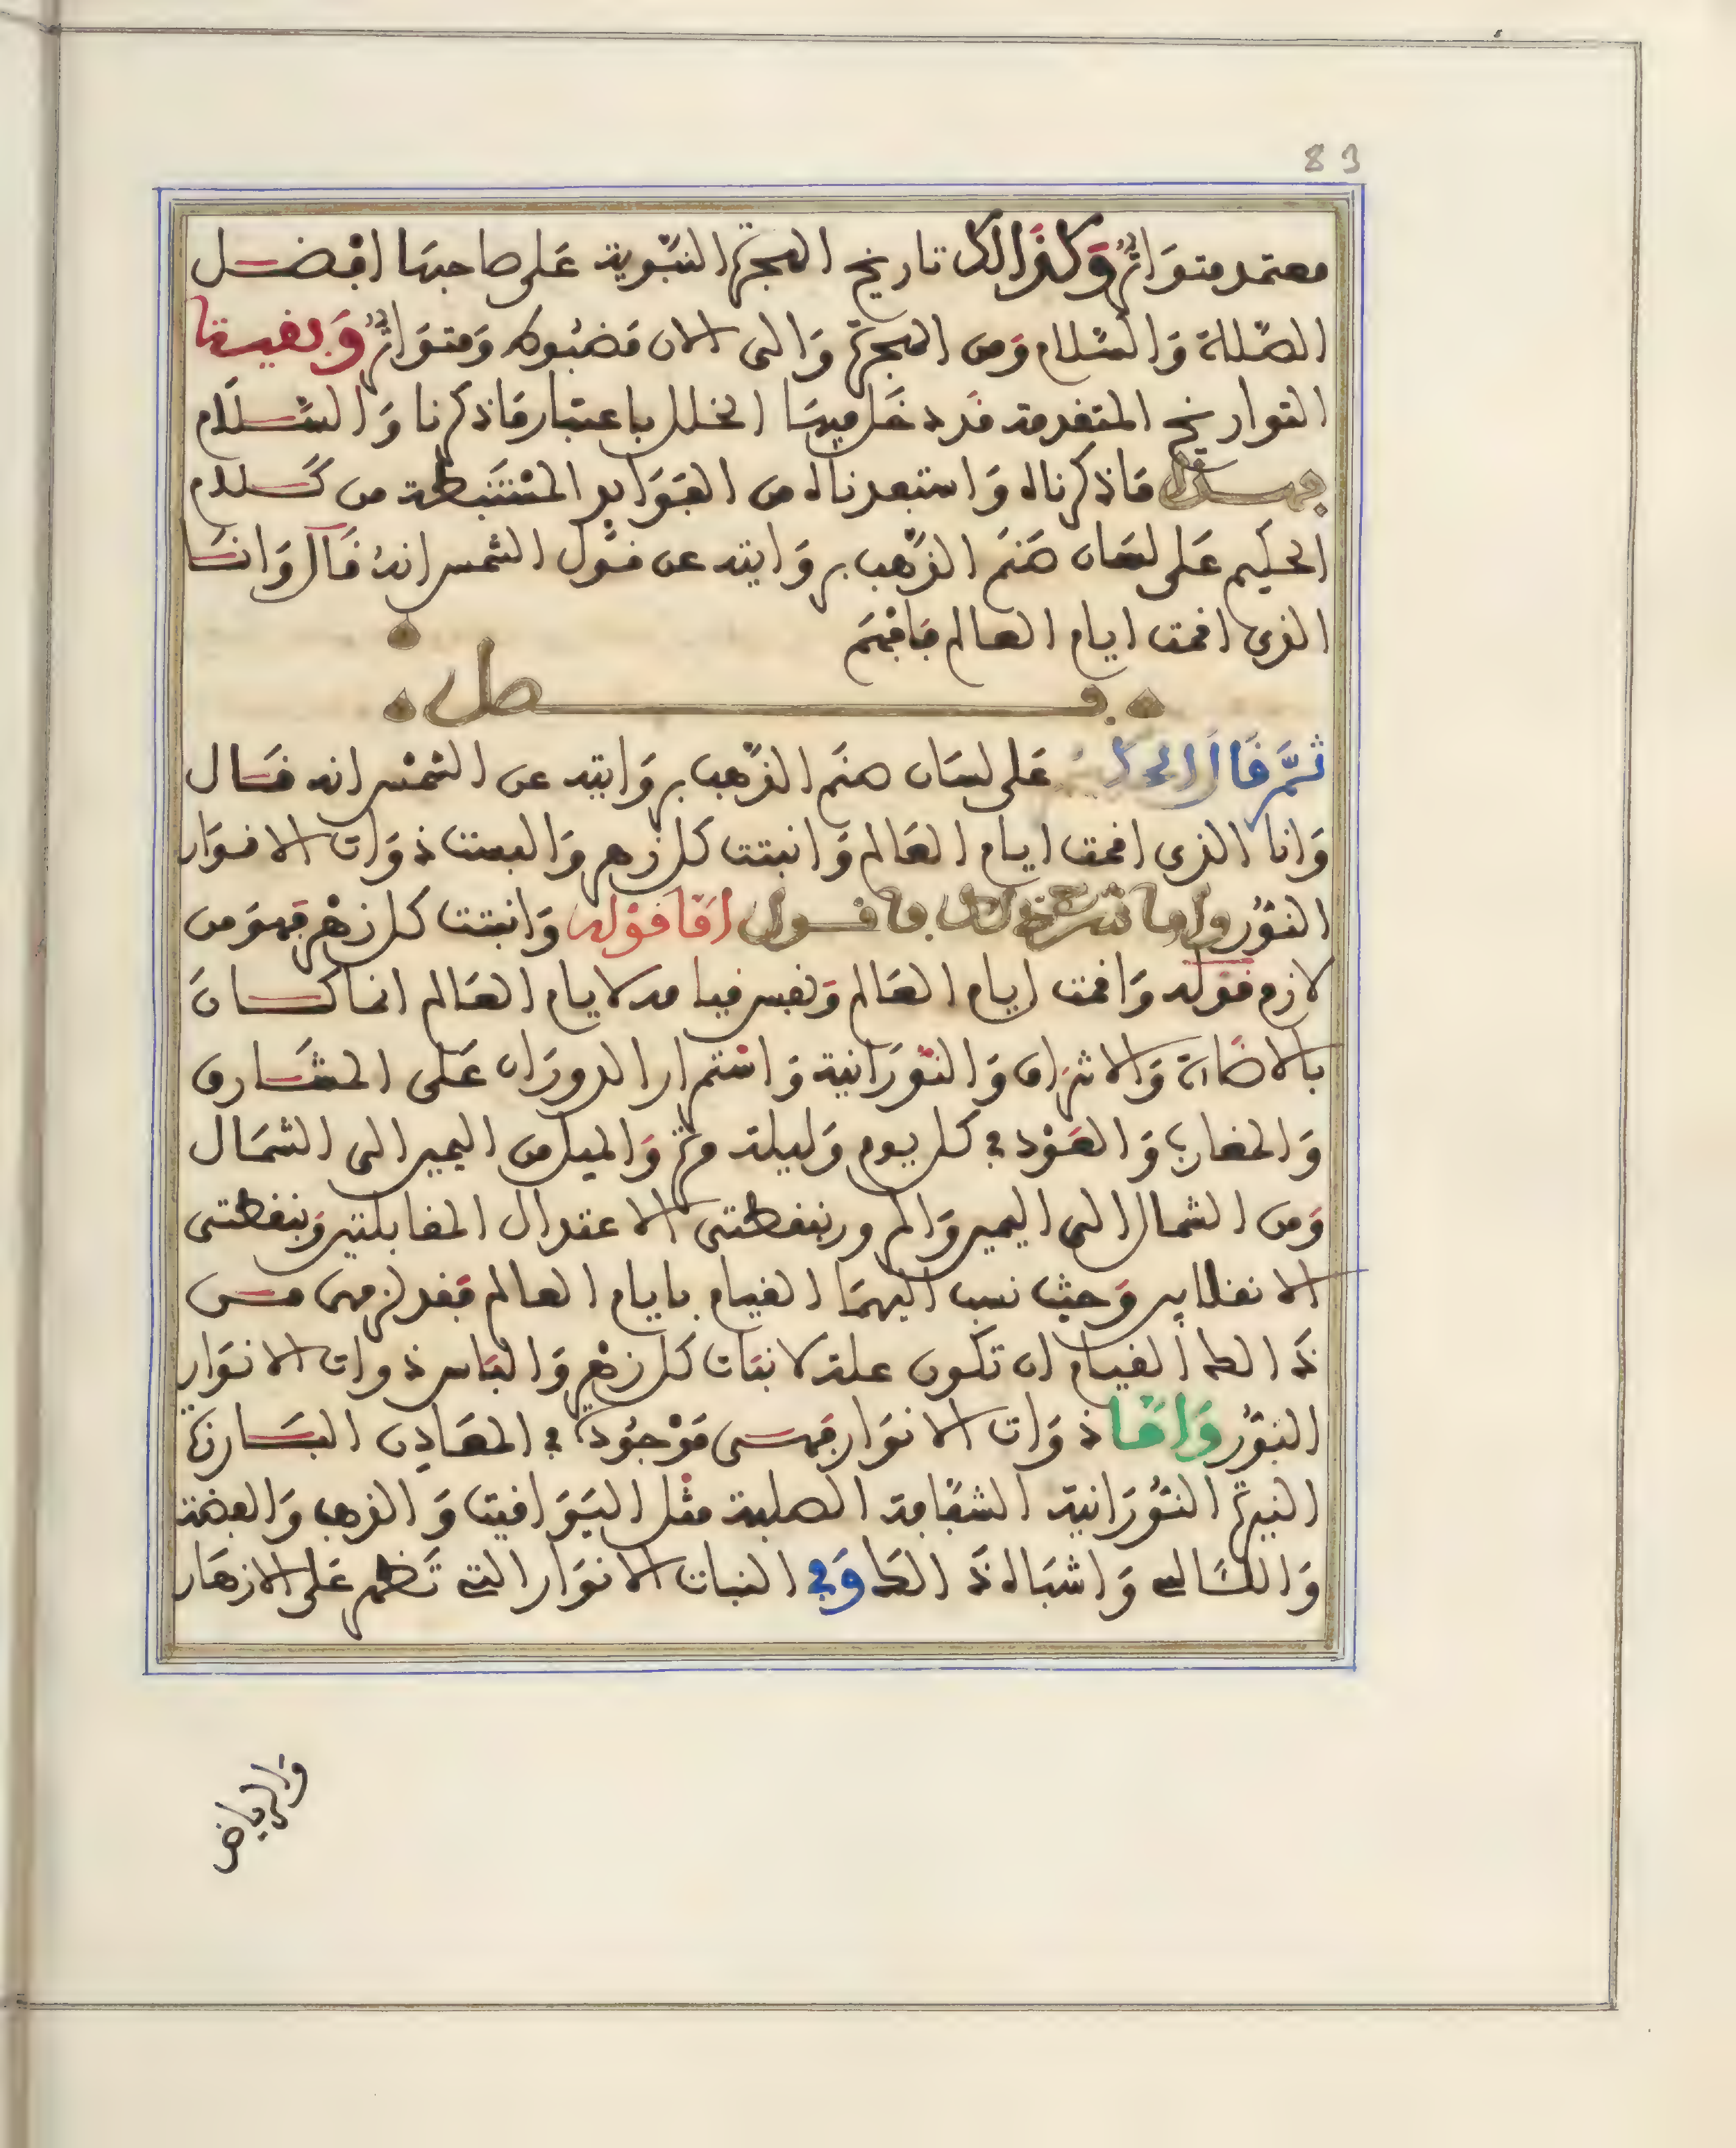 83
معتمد متواتر وكذالك تاريخ الهجرة النبوية على صاحبها افضل
الصلاة والسلام ومن الهجرة والى الان مضبوط ومتواتر وبقيت
التواريخ المتقدمة قد دخل فيها الخلل باعتبار ما ذكرنا والسلام
فهذا ما ذكرناه واستبعدناه من الفوايد المستنبطة من كلام
الحكيم على لسان صنم الذهب بروايته عن قول الشمس انه قال وانا
الذي اقمت ايام العالم فافهم
فصل
ثم قال الحكيم على لسان صنم الذهب بروايته عن الشمس انه قال
وانا الذي اقمت ايام العالم وانبتت كل زهر والبست ذوات الانوار
النور واما شرح ذلك فاقول اما قوله وانبتت كل زهر فهو من
لازم قوله واقمت ايام العالم ونفس قيامه لايام العالم انما كان
بالاضاءة والاشراق والنورانية واستمرار الدوران على المشارق
والمغارب والعود في كل يوم وليلة مرة والميل من اليمين الى الشمال
ومن الشمال الى اليمين والمرور بنقطتى الاعتدال المقابلتين وبنقطتى
الانقلابين وحيث نسب اليهما القيام بايام العالم فقد لزم من
ذالك القيام ان تكون علة لانبات كل زهر والباس ذوات الانوار
النور واما ذوات الانوار فهى موجودة في المعادن البارزة
النيرة النورانية الشفافة الصلبة مثل اليواقيت والذهب والفضة
واللئالي واشباه ذالك وفي النبات الانوار التي تظهر على الازهار
والرياض